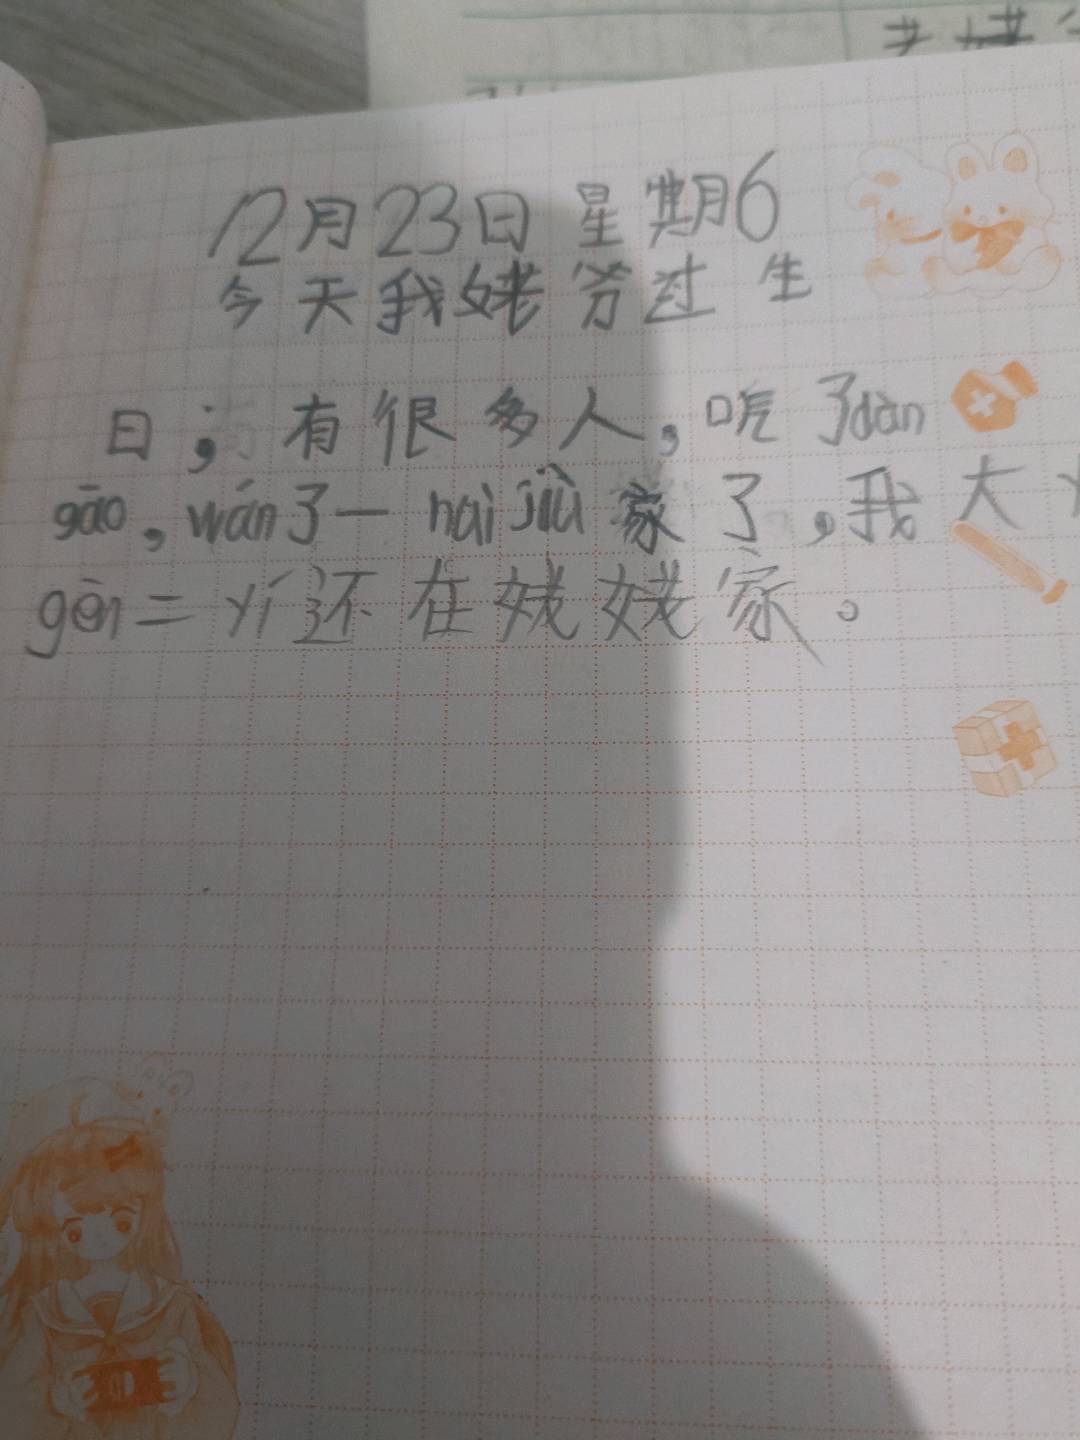 12月23日 星期6
今天我姥爷过生
日，有很多人，吃了dàn
gāo，wán了一haì jiù家了，我大
gēn二yí还在姥姥家。